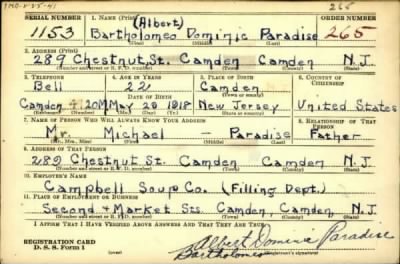 265
SERIAL NUMBER 1. NAME (Print) (Albert) ORDER NUMBER
1153 Bartholomeo Dominic Paradise 265
(First) (Middle) (Last)
2. ADDRESS (Print)
289 Chestnut St. Camden Camden N.J.
(Number and street or R. F. D. number) (Town) (County) (State)
3. TELEPHONE 4. AGE IN YEARS 5. PLACE OF BIRTH 6. COUNTRY OF CITIZENSHIP
Bell 22 Camden
DATE OF BIRTH
Camden May 20 1918 New Jersey United States
(Exchange) (Number) (Mo.) (Day) (Yr.) (State or country)
7. NAME OF PERSON WHO WILL ALWAYS KNOW YOUR ADDRESS 8. RELATIONSHIP OF THAT PERSON
Mr. Michael — Paradise Father
(Mr., Mrs., Miss) (First) (Middle) (Last)
9. ADDRESS OF THAT PERSON
289 Chestnut St. Camden Camden N.J.
(Number and street or R. F. D. number) (Town) (County) (State)
10. EMPLOYER'S NAME
Campbell Soup Co. (Filling Dept.)
11. PLACE OF EMPLOYMENT OR BUSINESS
Second & Market Sts. Camden, Camden, N.J.
(Number and street or R. F. D. number) (Town) (County) (State)
I AFFIRM THAT I HAVE VERIFIED ABOVE ANSWERS AND THAT THEY ARE TRUE.
REGISTRATION CARD
D. S. S. Form 1
Albert Dominic Paradise
Bartholomeo